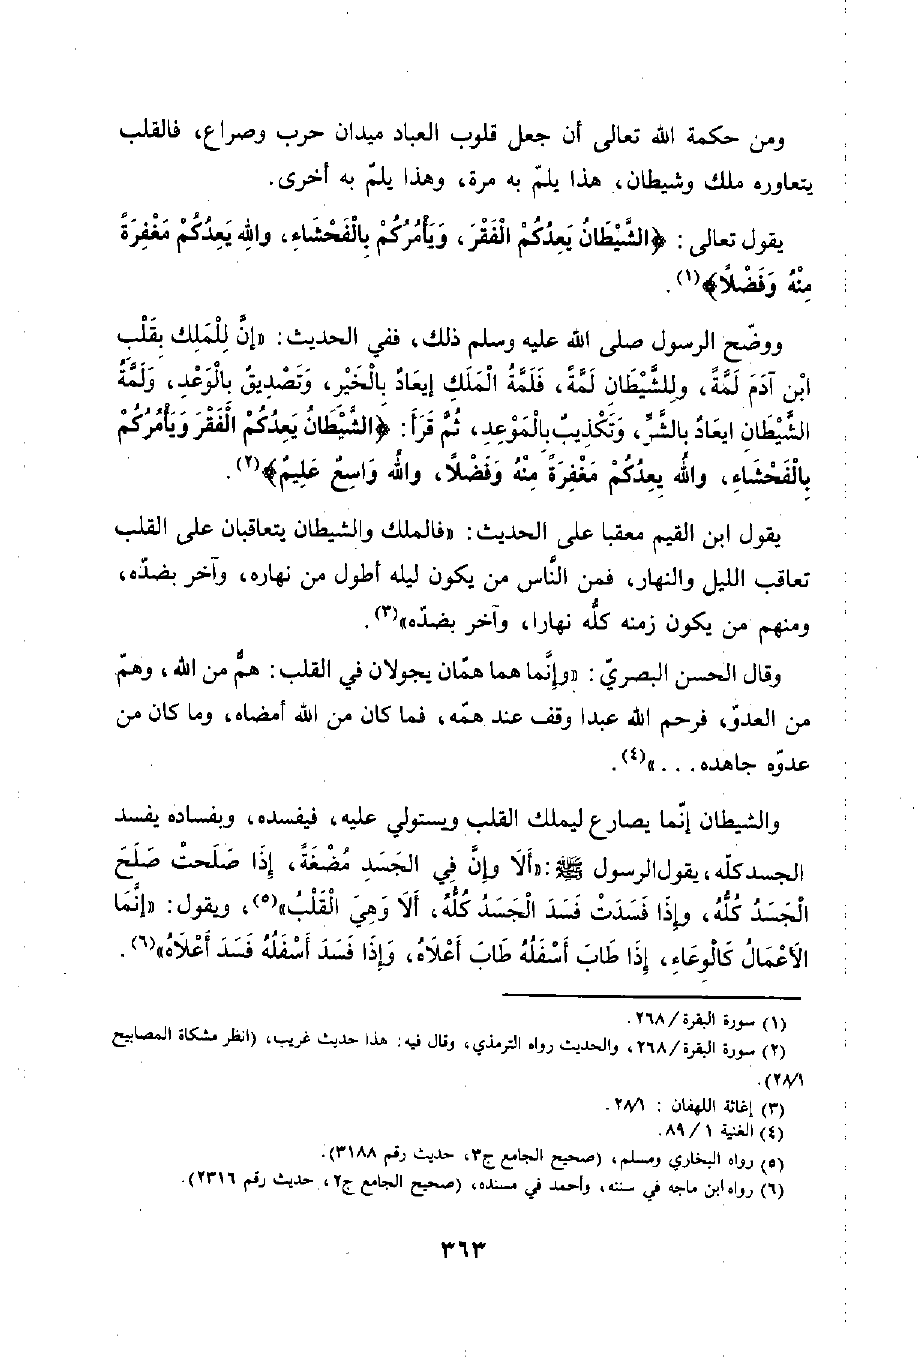 ومن حكمة الله تعالى أن جعل قلوب العباد ميدان حرب وصراع، فالقلب
يتعاوره ملك وشيطان، هذا يلمّ به مرة، وهذا يلمّ به أخرى.
يقول تعالى: ﴿الشَّيْطَانُ يَعِدُكُمْ الْفَقْرَ، وَيَأْمُرُكُمْ بِالْفَحْشَاءِ، والله يَعِدُكُمْ مَغْفِرَةً
مِنْهُ وَفَضْلًا﴾(١).
ووضّح الرسول صلى الله عليه وسلم ذلك، ففي الحديث: «إنَّ لِلْمَلِك بِقَلْبِ
ابْنِ آدَمَ لَمَّةً، وللشَّيْطَانِ لَمَّةً، فَلَمَّةُ الْمَلَكِ إيعَادٌ بالْخَيْرِ، وَتَصْدِيقٌ بالْوَعْدِ، وَلَمَّةُ
الشَّيْطَانِ ايعَادٌ بالشَّرِّ، وَتَكْذِيبٌ بِالْمَوْعِدِ، ثُمَّ قَرَأَ: ﴿الشَّيْطَانُ يَعِدُكُمْ الْفَقْرَ وَيَأْمُرُكُمْ
بِالْفَحْشَاءِ، واللهُ يعِدُكُمْ مَغْفِرَةً مِنْهُ وَفَضْلًا، واللهُ وَاسِعٌ عَلِيمٌ﴾(٢).
يقول ابن القيم معقبا على الحديث: «فالملك والشيطان يتعاقبان على القلب
تعاقب الليل والنهار، فمن النَّاس من يكون ليله أطول من نهاره، وآخر بضدّه،
ومنهم من يكون زمنه كلُّه نهارا، وآخر بضدّه»(٣).
وقال الحسن البصريّ: «وإنَّما هما همّان يجولان في القلب: همٌّ من الله، وهمّ
من العدوّ، فرحم الله عبدا وقف عند همّه، فما كان من الله أمضاه، وما كان من
عدوّه جاهده...»(٤).
والشيطان إنّما يصارع ليملك القلب ويستولي عليه، فيفسده، وبفساده يفسد
الجسد كلّه، يقول الرسول ﷺ: «أَلَا وإنَّ فِي الجَسَدِ مُضْغَةً، إِذَا صَلَحتْ صَلَحَ
الْجَسَدُ كُلُّهُ، وإِذَا فَسَدَتْ فَسَدَ الْجَسَدُ كُلُّهُ، أَلَا وَهِيَ الْقَلْبُ»(٥)، ويقول: «إنَّمَا
الأَعْمَالُ كَالْوِعَاءِ، إِذَا طَابَ أَسْفَلُهُ طَابَ أَعْلَاهُ، وَإِذَا فَسَدَ أَسْفَلُهُ فَسَدَ أَعْلَاهُ»(٦).
(١) سورة البقرة/٢٦٨.
(٢) سورة البقرة/٢٦٨، والحديث رواه الترمذي، وقال فيه: هذا حديث غريب، (انظر مشكاة المصابيح
٢٨/١).
(٣) إغاثة اللهفان: ٢٨/١.
(٤) الغنية ١/٨٩.
(٥) رواه البخاري ومسلم، (صحيح الجامع ج٣، حديث رقم ٣١٨٨).
(٦) رواه ابن ماجه في سننه، وأحمد في مسنده، (صحيح الجامع ج٢، حديث رقم ٢٣١٦).
٣٦٣